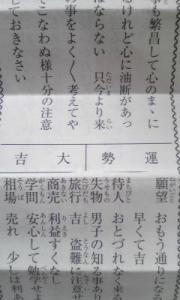 繁昌して心のまゝに
るけれど心に油断があっ
はならない 只今より来
事をよく〱考えてや
こなわぬ様十分の注意
しておきなさい
運勢 大吉
願望 おもう通りにな
早くて吉
待人 おとづれなく来
失物 男子の知る事あ
旅行 吉 盗難に注意せ
商売 利益すくなし
学問 安心して勉学せ
相場 売れ 少しは利あ